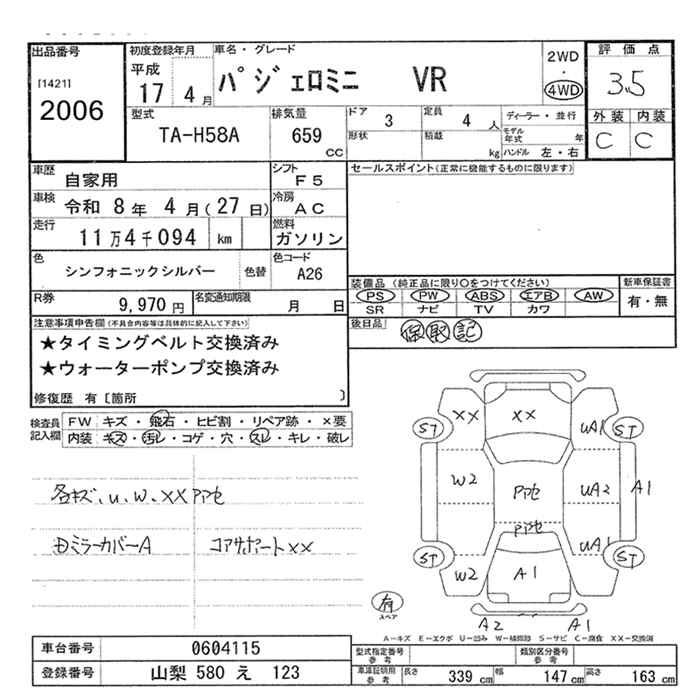 出品番号
[1421]
2006
初度登録年月
平成
17 4月
車名・グレード
パジェロミニ VR
2WD
・
4WD
評価点
3.5
外装 内装
C C
型式
TA-H58A
排気量
659
CC
ドア 3
形状
定員 4 人
積載 kg
ディーラー・並行
モデル年式 年
ハンドル 左・右
車歴 自家用
車検 令和 8年 4月(27日)
走行 11万4千094 km
色 シンフォニックシルバー 色替
シフト F5
冷房 AC
燃料 ガソリン
色コード A26
R券 9,970円
名変通知期限 月 日
セールスポイント(正常に機能するものに限ります)
装備品 (純正品に限り○をつけてください)
PS PW ABS エアB AW
SR ナビ TV カワ
新車保証書
有・無
後日品 保取記
注意事項申告欄(不具合内容等は具体的に記入して下さい)
★タイミングベルト交換済み
★ウォーターポンプ交換済み
修復歴 有〔箇所 〕
検査員記入欄
FW キズ・飛石・ヒビ割・リペア跡・×要
内装 キズ・汚レ・コゲ・穴・スレ・キレ・破レ
各キズ、U、W、XX PPセ
ミラーカバーA コアサポートXX
XX XX UA1
ST ST
W2 PPセ UA2 A1
PPセ
UA1
ST ST
W2 A1
A2 A1
有
スペア
A-キズ E-エクボ U-凹み W-補修跡 S-サビ C-腐食 XX-交換済
車台番号 0604115
登録番号 山梨 580 え 123
型式指定番号 参考
類別区分番号 参考
車庫証明用 参考
長さ 339 cm 幅 147 cm 高さ 163 cm